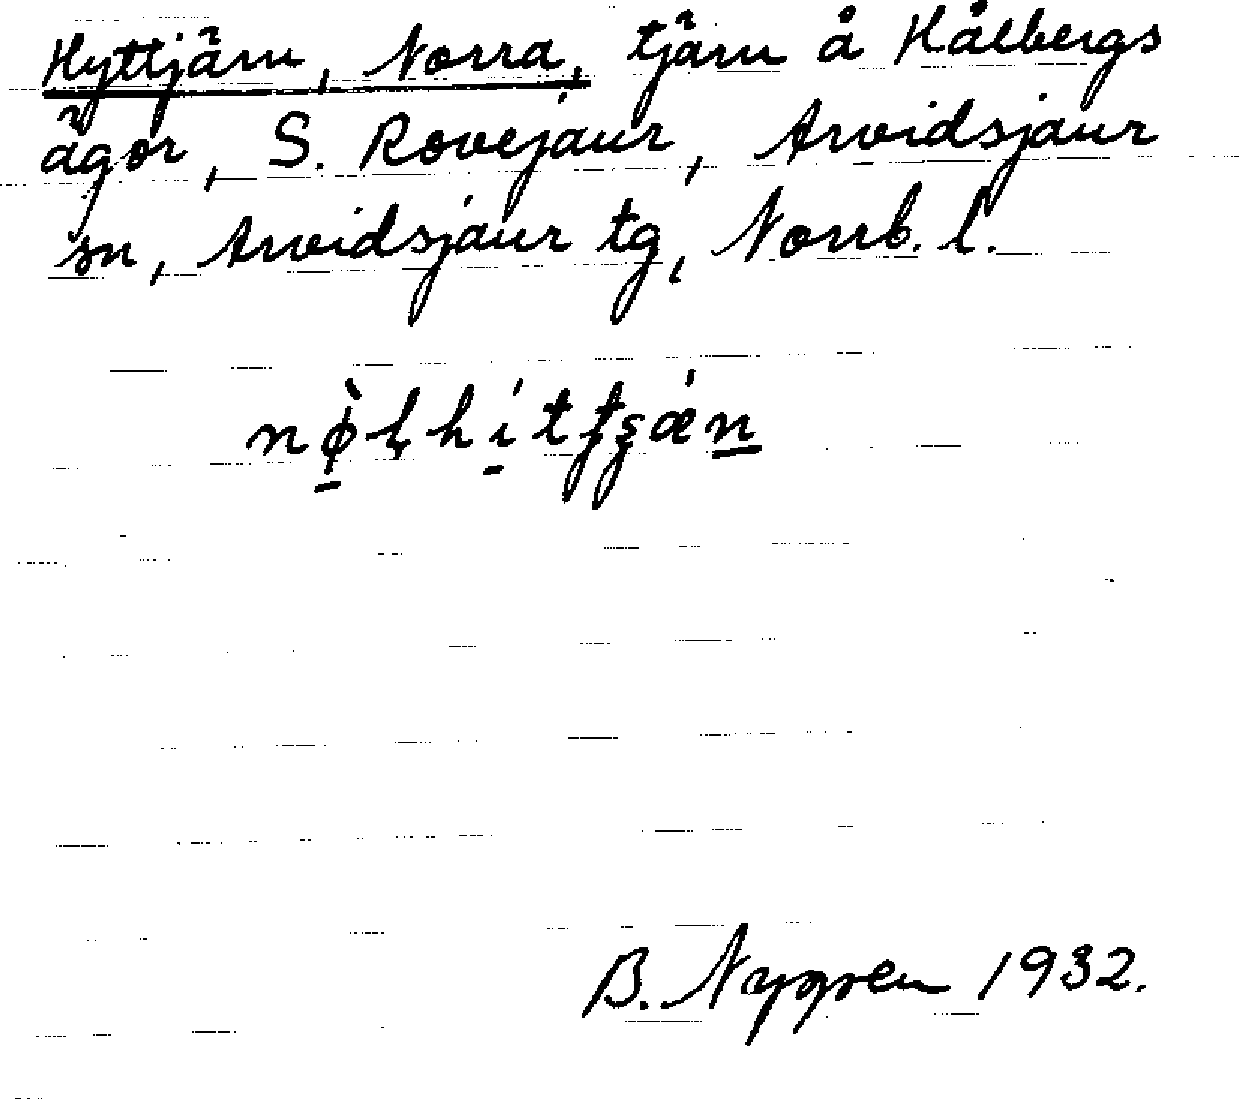 Hyttjärn, Norra, tjärn å Hålbergs
ägor, S. Rovejaur, Arvidsjaur
sn, Arvidsjaur tg, Norrb. l.
B. Nygren 1932.